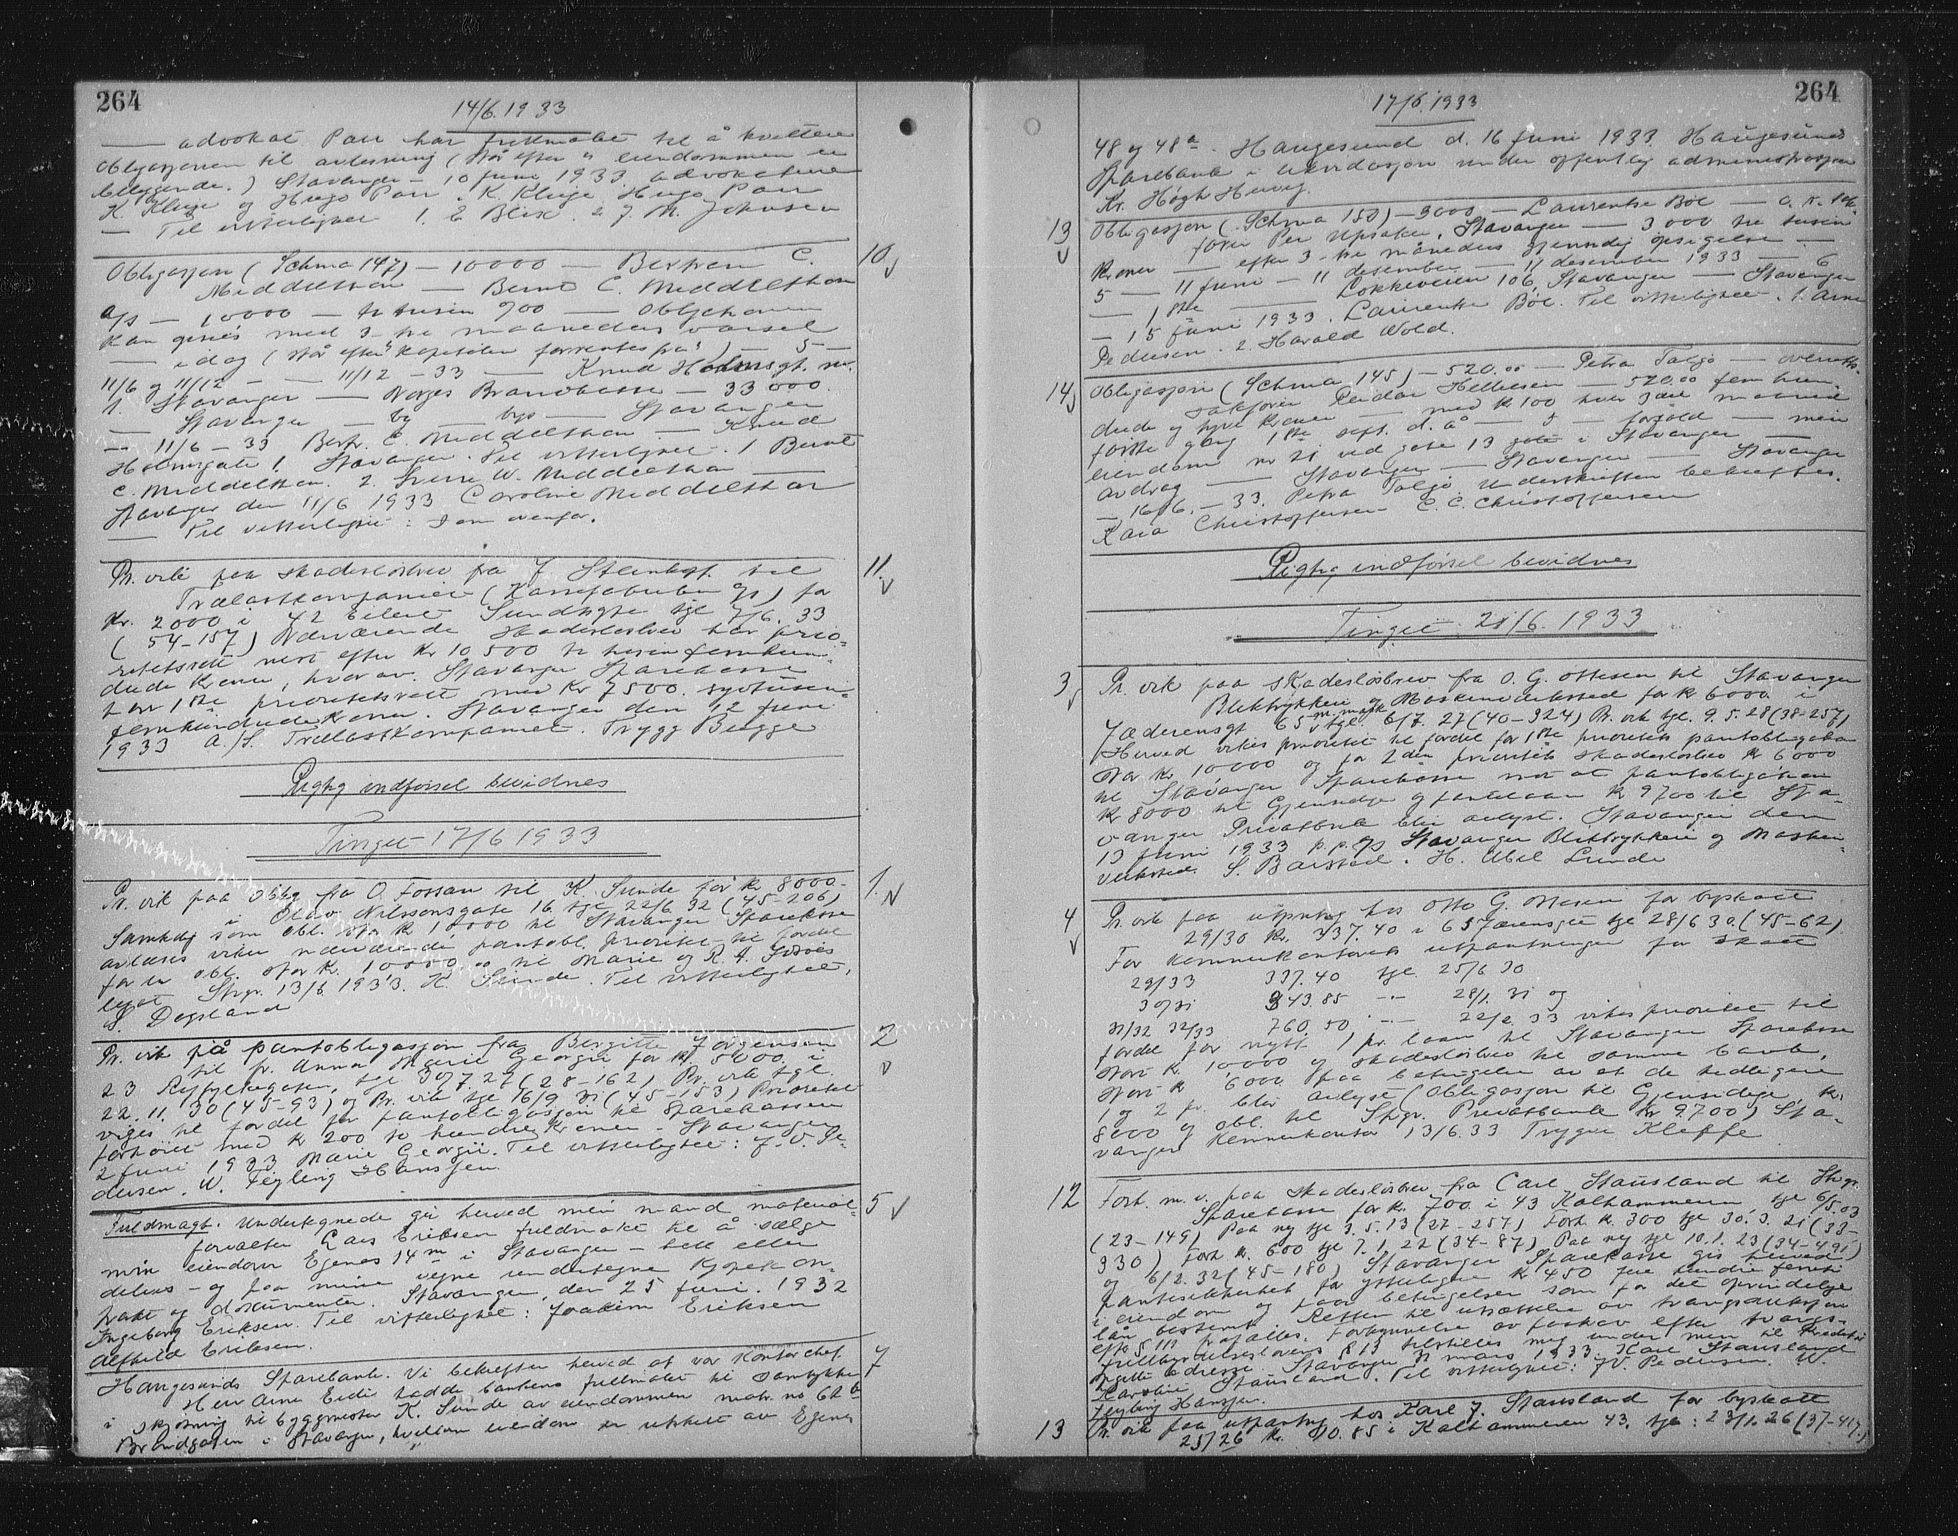 264
14/6 1933
— advokat Parr har fuldmakt til å kvittere
Obligasjonen til avlesning (står efter " eiendommen er
beliggende.) Stavanger – 10 juni 1933. advokatene
K. Kluge og Hugo Parr. K. Kluge Hugo Parr
— Til vitterlighet 1. E Blix. 2 J. M. Johnsen
10
Obligasjon (Schma 147) — 10000 — Bertram C.
Middelthon — Bernt C. Middelthon
a/s — 10000 — ti tusen 700 — Obl.
kan opsies med 3- tre maaneders varsel
— idag (står efter "kapitalen forrentes fra") — 5 —
11/6 og 11/12 — — 11/12 – 33 — Knud Holmsgt. nr.
1. Stavanger — Norges Brandkasse — 33000.
— Stavanger — by — bys — Stavanger
— 11/6 – 33 Bertr. C. Middelthon. — Knud
Holmsgate 1. Stavanger. Til vitterlighet. 1 Bernt
C. Middelthon. 2. Sverre W. Middelthon —
Stavanger den 11/6 1933 Caroline Middelthon
— Til vitterlighet: Som ovenfor.
11.
Pr. vik. paa skadesløsbrev fra J Stenhoff til
Trælastkompaniet (Kassefabrikken a/s) for
Kr. 2000 i 42 Eilert Sundtsgt tgl 7/6. 33
(54–157) Nærværende skadesløsbrev har prio-
ritetsrett nest efter Kr 10 500 ti tusen femhun-
drede Kroner, hvorav Stavanger Sparekasse
har 1ste prioritetsrett med Kr 7500. syvtusen-
femhundrede kroner. Stavanger den 12 juni
1933 A./S. Trælastkompaniet. Trygg Bugge
Rigtig indførsel bevidnes
Tinget 17/6 1933
1.
Pr. vik paa oblig fra O. Fossan til K. Sunde for kr 8000-
i Olav Nilssonsgate 16 tgl 22/6 32 (45–206)
Samtidig som obl. stor K 12000 til Stavanger Sparekasse
avlæses viker nærværende pantobl. prioritet til fordel
for en obl. stor K. 10000 til Marie og R. A.
legat Stvgr. 13/6 1933. K. Sunde. Til vitterlighet,
S. Døgsland
2
Pr. vik på pantobligasjon fra Bergitte Jørgensen
til fr. Anna Marie Georgii for kr 5000. i
23 Ryfylkegaten, tgl 30/7. 27 (28–162) Pr. vik tgl.
22. 11. 30 (45–93) og Pr. vik tgl 16/9 31 (45–153) Prioritet
viges til fordel for pantobligasjon til Sparekassen
forhöiet med kr 200 to hundre kroner – Stavanger
2 juni 1933 Marie Georgii. Til vitterlighet: J. V. Pe-
dersen. W. Feyling Hanssen.
5
Fuldmagt. Undertegnede gir herved min mand material-
forvalter Lars Eriksen fuldmakt til å sælge
min eiendom Egenes 14 m i Stavanger – helt eller
delvis – og paa mine vegne undertegne kjøpekon-
trakt og dokumenter. Stavanger, den 25 juni. 1932
Ingeborg Eriksen. Til vitterlighet: Joakim Eriksen
Alfhild Eriksen.
7
Haugesunds Sparebank. Vi bekrefter herved at vor Kontorchef
Herr Arne Eide hadde bankens fullmakt til samtykke
i skjøtning til byggmester K. Sunde av eiendommen matr. no 6t
Brandgaten i Stavanger, hvilken eiendom er utskilt av Egenes
264
17/6. 1933
48 og 48a. Haugesund d. 16 Juni 1933. Haugesunds
Sparebank i likvidasjon under offentlig administrasjon
Kr. Høgh Hervig.
13
Obligasjon (Schma 150) — 3000 — Laurentse Böe — o. r. sak-
fører Per Upsaker. Stavanger — 3000 tre tusen
Kroner — efter 3- tre måneders gjensidig opsigelse —
5 — 11 juni — 11 desember — 11 desember 1933 — 6
— 1ste — Løkkeveien 106, Stavanger — Stavanger
— 15 juni 1933. Laurentse Böe. Til vitterlighet. 1. Arne
Pedersen. 2. Harald Wold.
14
Obligasjon (Schma 145) — 520.00 — Petra Talgö — overretts-
sakfører Reidar Helliesen — 520.00 fem hun-
drede og tyve kroner — med K 100 hver 3dje maaned
förste gang 1ste sept. d. å — 5 — forfald — min
eiendom nr 21 ved gate 13 gate i Stavanger —
avdrag — Stavanger — Stavanger — Stavanger
— 16/6. – 33. Petra Talgö Underskriften bekreftes.
Kara Christoffersen E. C. Christoffersen
Rigtig indførsel bevidnes
Tinget 21/6. 1933
3
Pr. vik paa skadesløsbrev fra O. G. Ottesen til Stavanger
Bliktrykkeri og Maskinverksted for kr 6000. i
Jæderensgt 65 m. mask. tgl. 6/7. 27 (40–324) Pr. vik tgl. 9. 5. 28 (38–257)
Herved vikes prioritet til fordel for 1ste prioritets pantobligation
stor Kr. 10,000 og for 2den prioritets skadesløsbrev Kr 6000
til Stavanger Sparekasse mot at pantobligationen
kr 8000 til Gjensidige og pantelaan Kr 9700 til Sta-
vanger Privatbank blir avlyst. Stavanger den
13 Juni 1933 p. p. a/s Stavanger Bliktrykkeri og Maskin-
verksted. S. Barstad. H. Abel Lunde
4
Pr. vik paa utpantng hos Otto G. Ottesen for byskatt
29/30 Kr. 337.40 i 65 Jærensgt tgl 28/6 30. (45–62)
For Kemnerkontorets utpantninger for skatt
29/33 337.40 tgl. 25/6 30
30/31 343.85 — 28/1. 31 og
31/32 32/33 760.50 — 22/2 33 vikes prioritet til
fordel for nytt 1 pr. laan til Stavanger Sparekasse
stort K. 10000 og skadesløsbrev til samme bank,
stort K 6000 paa betingelse av at de tidligere
1 og 2 pr. blir avlyst (Obligasjon til Gjensidige, Kr.
8000 og obl. til Stvgr. Privatbank Kr 9700) Sta-
vanger Kemnerkontor 13/6. 33 Trygve Kleppe
12
Forh. m. v. paa skadesløsbrev fra Carl Stausland til Stvgr.
Sparekasse for K. 700 i 43 Kalhammeren, tgl 6/5. 03
(23–149) Paa ny tgl 3. 5. 13 (27–257) Forh. K. 300 tgl 30. 3. 21 (33–
330) Forh. K. 600 tgl 7. 1. 22 (34–87) Paa ny tgl 10. 1. 23 (34–491)
og 6/2. 32 (45–180) Stavanger Sparekasse gis herved
pantesikkerhet for ytterligere K 450 fire hundre femti
i eiendom og paa betingelser som for det oprindelige
lån bestemt. Retten til utsættelse av tvangsauksjon
efter § 111 frafalles. Forkynnelse av forkav efter tvangs-
fullbyrdelseslovens § 13 tilstilles mig under min til Kreditor
opgitte adresse. Stavanger 31 mars 1933. Karl Stausland
Karoline Stausland. Til vitterlighet: J. V. Pedersen. W.
Feyling Hanssen.
13
Pr. vik paa utpantng hos Karl J. Stausland for byskatt
25/26 Kr. 10.85 i Kalhammeren 43. tgl: 23/1. 26 (37–417)